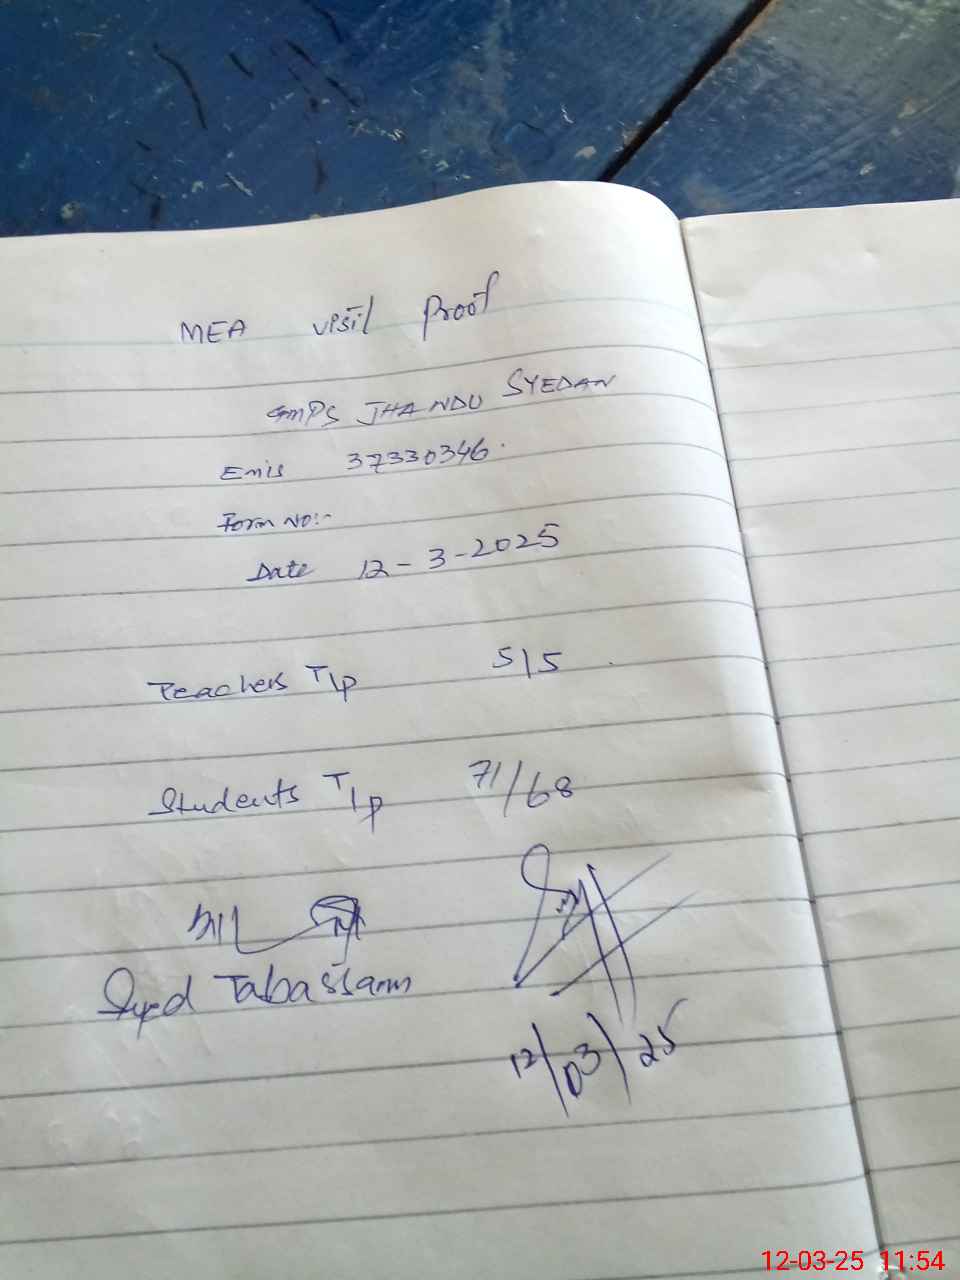 MEA visit Proof
GMPS JHANDU SYEDAN
Emis 37330346.
Form No:-
Date 12-3-2025
Teachers T/P 5/5
Students T/P 71/68
Syed Tabassam
12/03/25
12-03-25 11:54